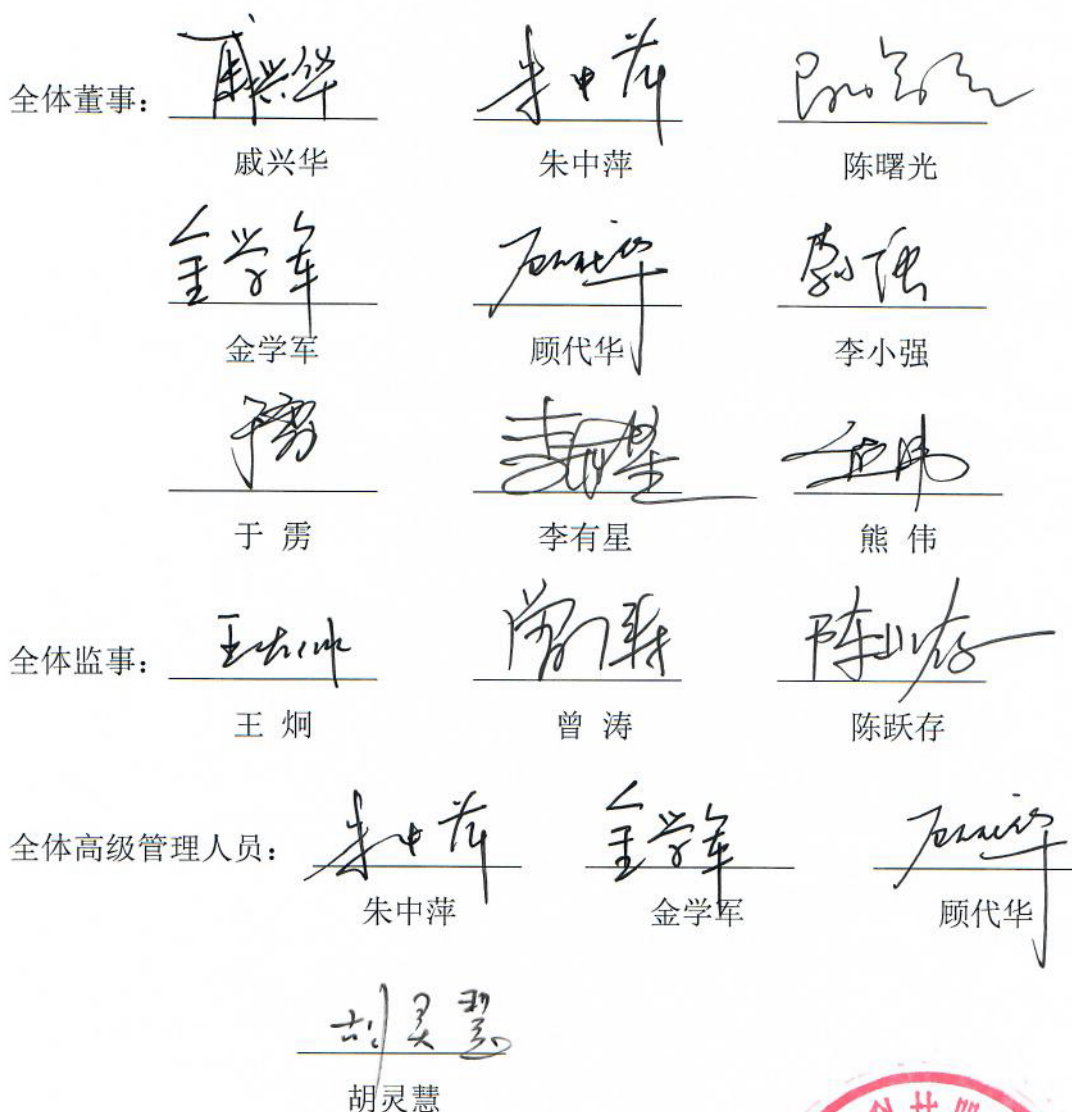 全体董事：
戚兴华 朱中萍 陈曙光
金学军 顾代华 李小强
于 雳 李有星 熊 伟
全体监事：
王 炯 曾 涛 陈跃存
全体高级管理人员：
朱中萍 金学军 顾代华
胡灵慧